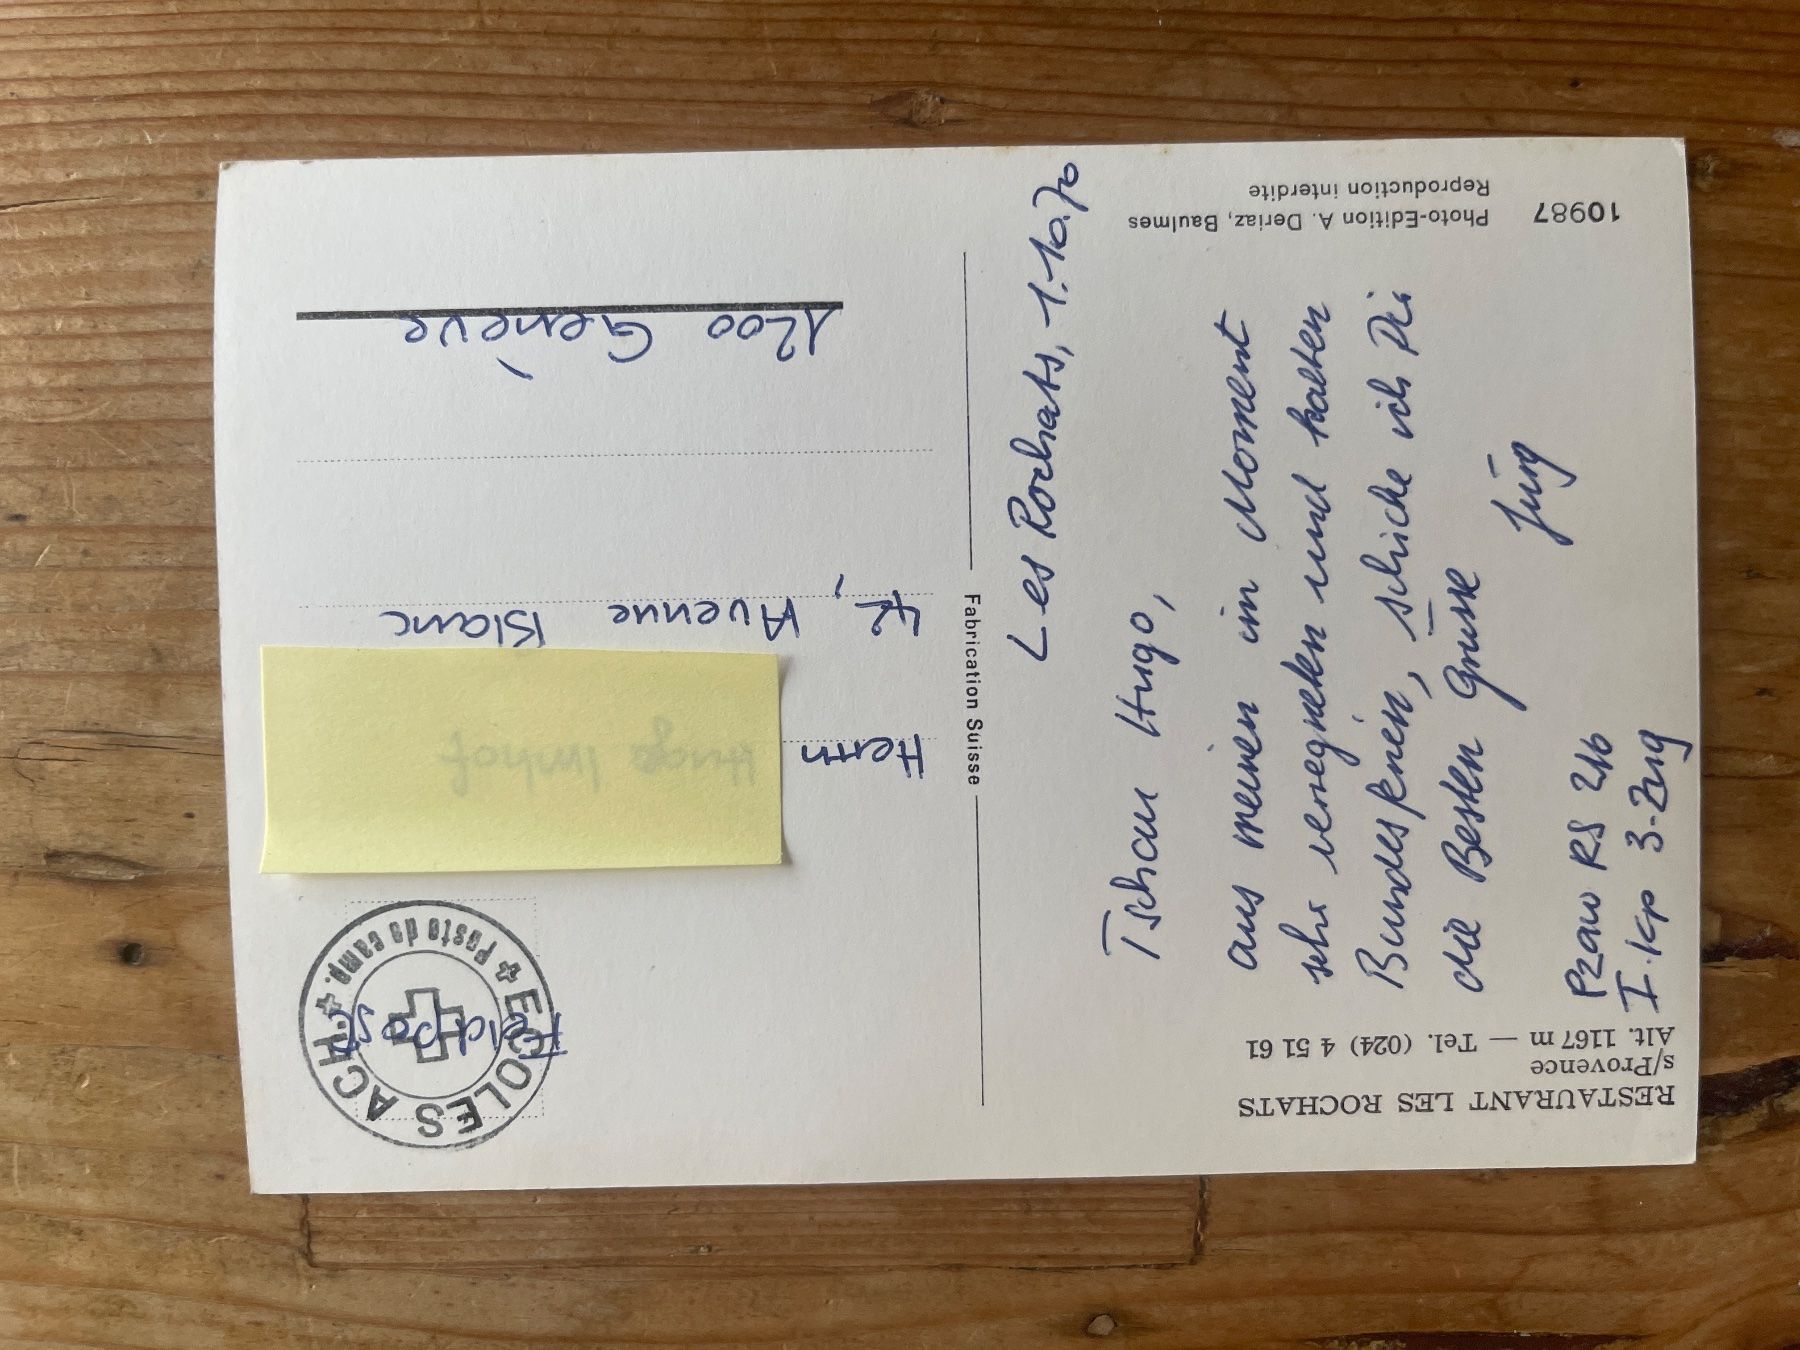 RESTAURANT LES ROCHATS
s/Provence
Alt. 1167 m — Tel. (024) 4 51 61
Les Rochats, 1.10.70
Tschau Hugo,
aus meinen im Moment
sehr verregneten und kalten
Bundesferien, schicke ich Dir
die Besten Grüsse
Jürg
Pzaw RS 216
I. Kp 3. Zug
10987
Photo-Edition A. Deriaz, Baumes
Reproduction interdite
Fabrication Suisse
ECOLES ACH
+ Poste de camp. +
Feldpost
Herrn
42, Avenue Blanc
1200 Genève